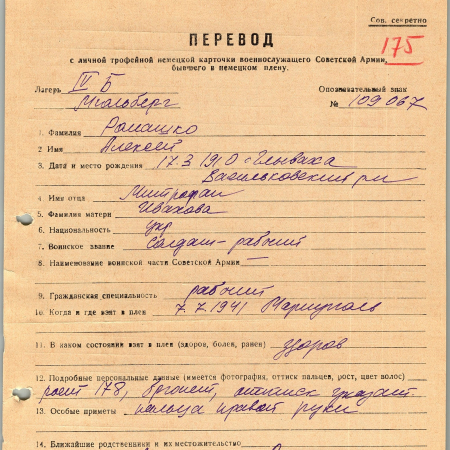 Сов. секретно
ПЕРЕВОД
175
с личной трофейной немецкой карточки военнослужащего Советской Армии,
бывшего в немецком плену.
Лагерь IV Б Опознавательный знак
Мюльберг № 109067
1. Фамилия Ромашко
2 Имя Алексей
3. Дата и место рождения 17.3.1910 с. Глеваха
Васильковский р-н
4 Имя отца Митрофан
5. Фамилия матери Ивахова
6. Национальность укр
7. Воинское звание Солдат-рабочий
8. Наименование воинской части Советской Армии —
9. Гражданская специальность рабочий
10. Когда и где взят в плен 7.7.1941 Мариуполь
11. В каком состоянии взят в плен (здоров, болен, ранен) здоров
12. Подробные персональные данные (имеется фотография, оттиск пальцев, рост, цвет волос)
рост 178, брюнет, оттиск указат.
13. Особые приметы пальца правой руки
14. Ближайшие родственники и их местожительство